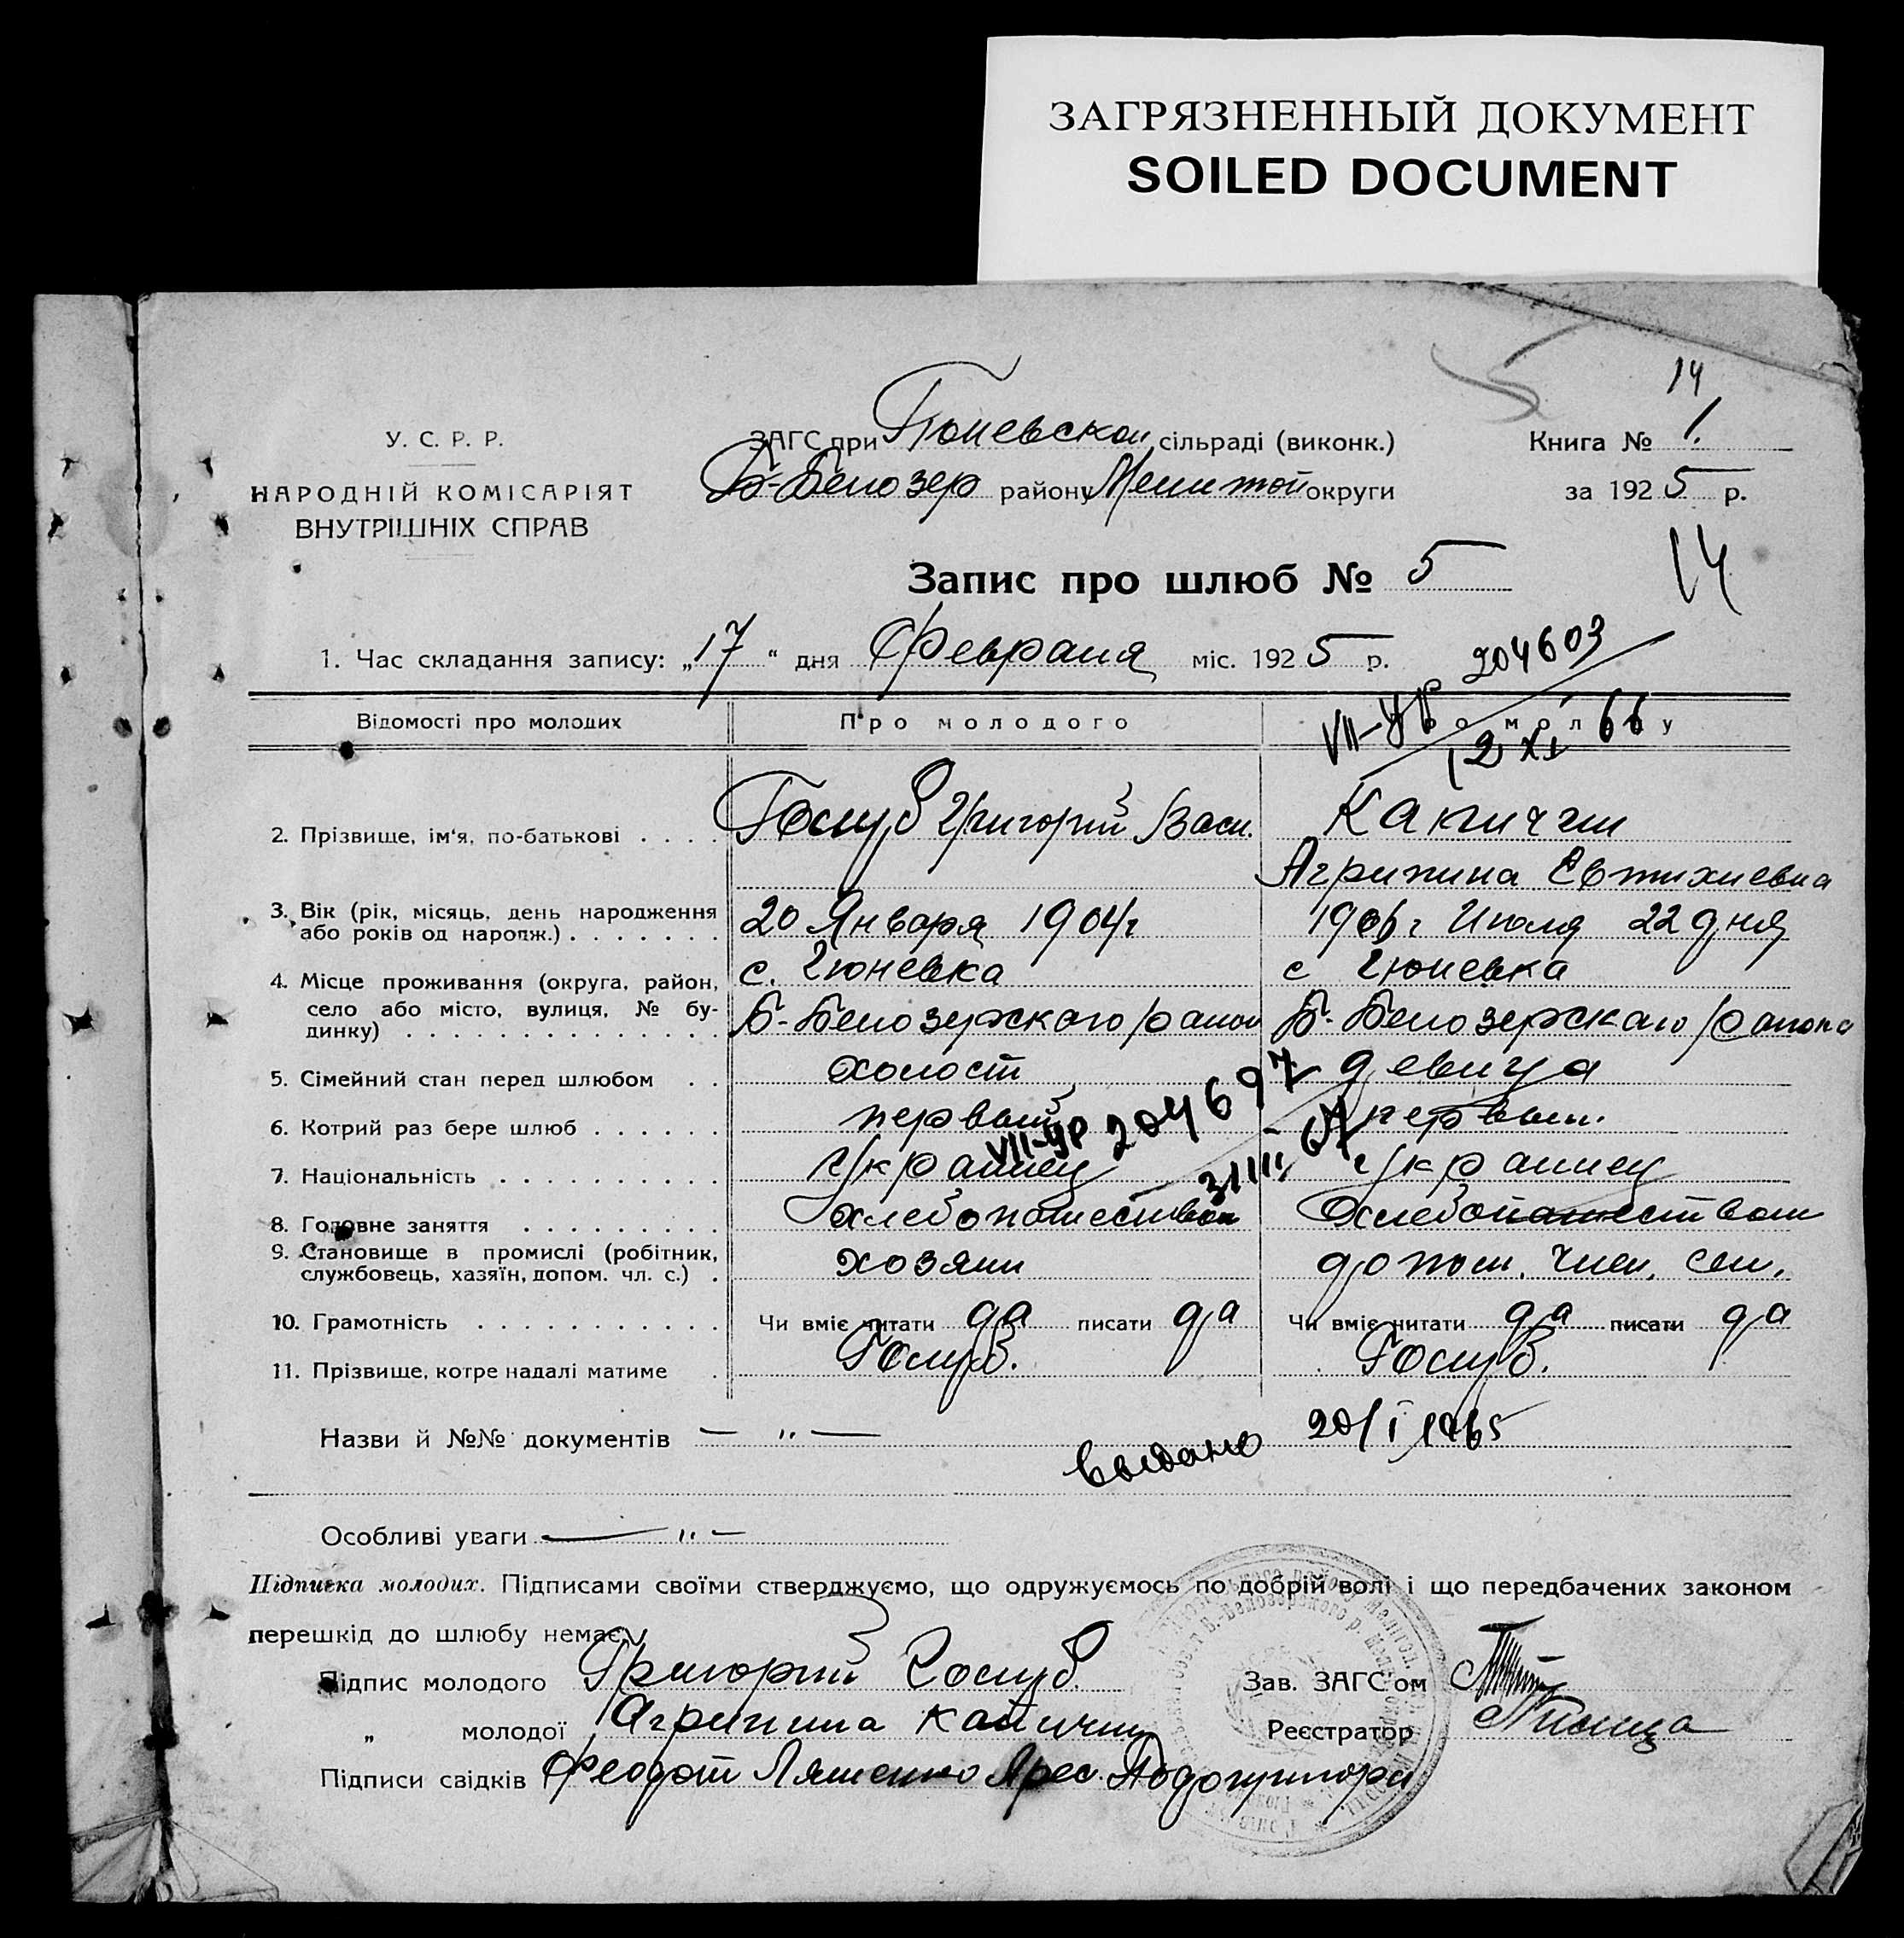 ЗАГРЯЗНЕННЫЙ ДОКУМЕНТ
SOILED DOCUMENT
14
У. С. Р. Р.
НАРОДНІЙ КОМІСАРІЯТ
ВНУТРІШНІХ СПРАВ
ЗАГС при Гюневском сільраді (виконк.)
Б-Белозер району Мелитоп округи
Книга № 1.
за 1925 р.
14
Запис про шлюб № 5
1. Час складання запису: „17“ дня Февраля міс. 1925 р.
VII-УР 204603
12 XI 66
Відомості про молодих Про молодого Про молоду
2. Прізвище, ім'я, по-батькові . . . . Голуб Григорий Васил. Капичин
Агрипина Евтихиевна
3. Вік (рік, місяць, день народження або років од народж.) . . . . . . . 20 Января 1904г 1906г Июля 22 дня
4. Місце проживання (округа, район, село або місто, вулиця, № будинку) . . . . . . . . . . . . . с. Гюневка с Гюневка
Б-Белозерского района Б-Белозерскаго района
5. Сімейний стан перед шлюбом . . холост девица
6. Котрий раз бере шлюб . . . . . . первый первый
VII-УР 204697
31 III 67
7. Національність . . . . . . . . . . Украинец Украинец
8. Головне заняття . . . . . . . . . Хлебопашеством Хлебопашеством
9. Становище в промислі (робітник, службовець, хазяїн, допом. чл. с.) . хозяин допом. член. сем.
10. Грамотність . . . . . . . . . . . Чи вміє читати да писати да Чи вміє читати да писати да
11. Прізвище, котре надалі матиме . Голуб. Голуб.
Назви й №№ документів — „ —
выдано 20/I 1965
Особливі уваги — „ —
Підписка молодих. Підписами своїми стверджуємо, що одружуємось по добрій волі і що передбачених законом
перешкід до шлюбу немає.
Підпис молодого Григорий Голуб. Зав. ЗАГС'ом
„ молодої Агрипина Капичин Реєстратор
Підписи свідків Феодот Ляшенко